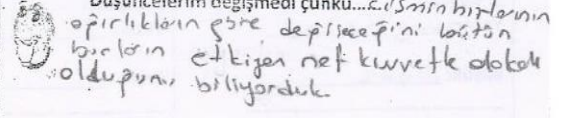 Düşüncelerim değişmedi çünkü...cismin hızlarının
ağırlıkların göre değişeceğini bütün
bunların etkiyen net kuvvetle alakalı
olduğunu biliyorduk.